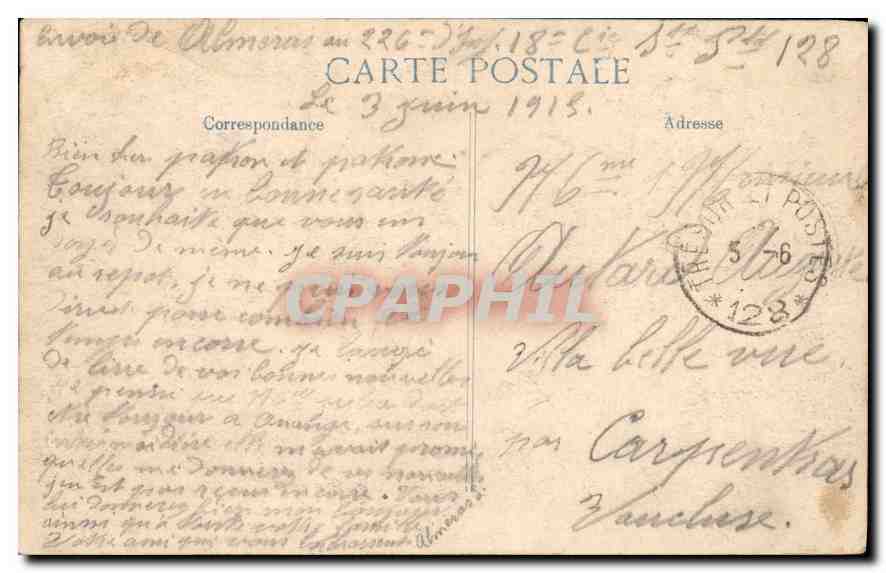 Envoie de Almeras au 226e d'Inf. 18e Cie Sr Ptal 128
CARTE POSTALE
Le 3 juin 1915.
Correspondance
Adresse
Bien cher patron et patrone.
Toujour en bonne santé
je souhaite que vous en
soyez de même. je suis toujour
au repos, je ne
pour combien de
temps encorre. je
de lirre de vos bonnes nouvelles
je pense que
être toujour a Orange,
elle m'avait promi
qu'elle me donnerez de
j'en est pas reçue encorre. Vous
lui donnerez bien mon bonjour
ainsi qu'a toute votre famille
Votre ami qui vous embrassent
Almeras J.
Mme Monsieur
Autard Auguste
Villa belle vue.
par Carpentras
Vaucluse.
TRESOR ET POSTES
5 -6
*128*
CPAPHIL